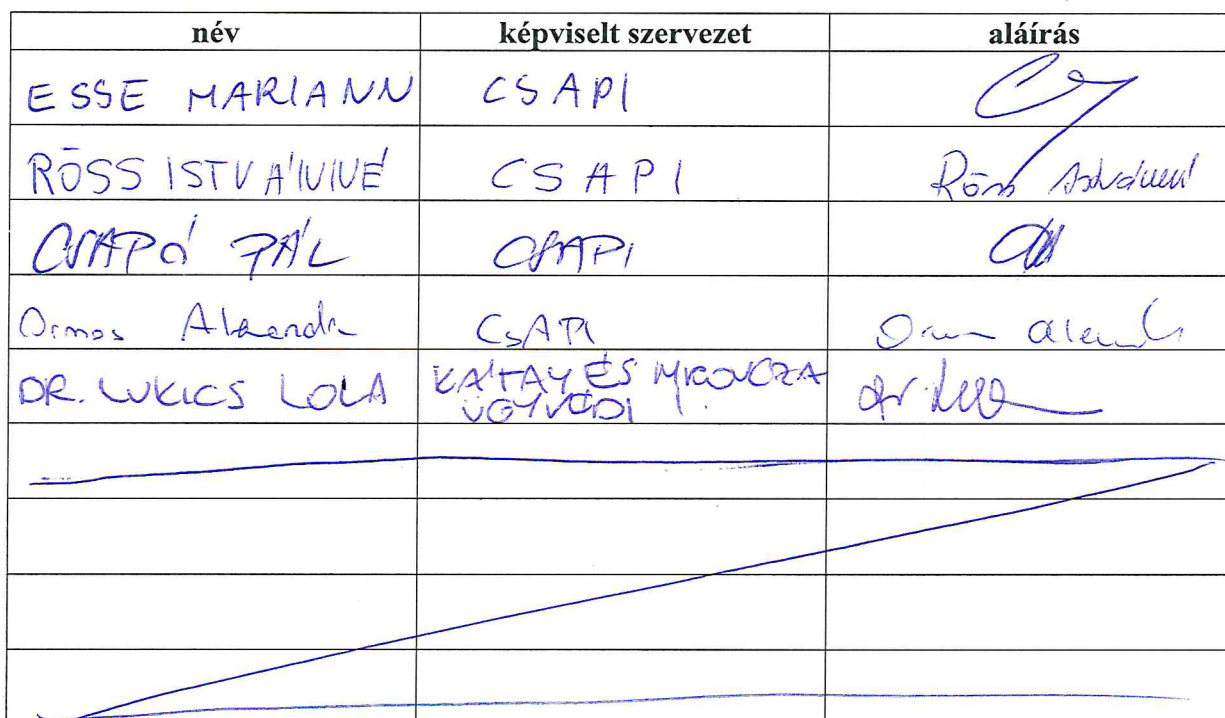 név képviselt szervezet aláírás
ESSE MARIANN CSAPI
RÖSS ISTVÁNNÉ CSAPI Röss Istvánné
CSAPÓ PÁL CSAPI
Ormos Alexandra CSAPI
DR. LUKICS LOLA KÁTAY ÉS
ÜGYVÉDI